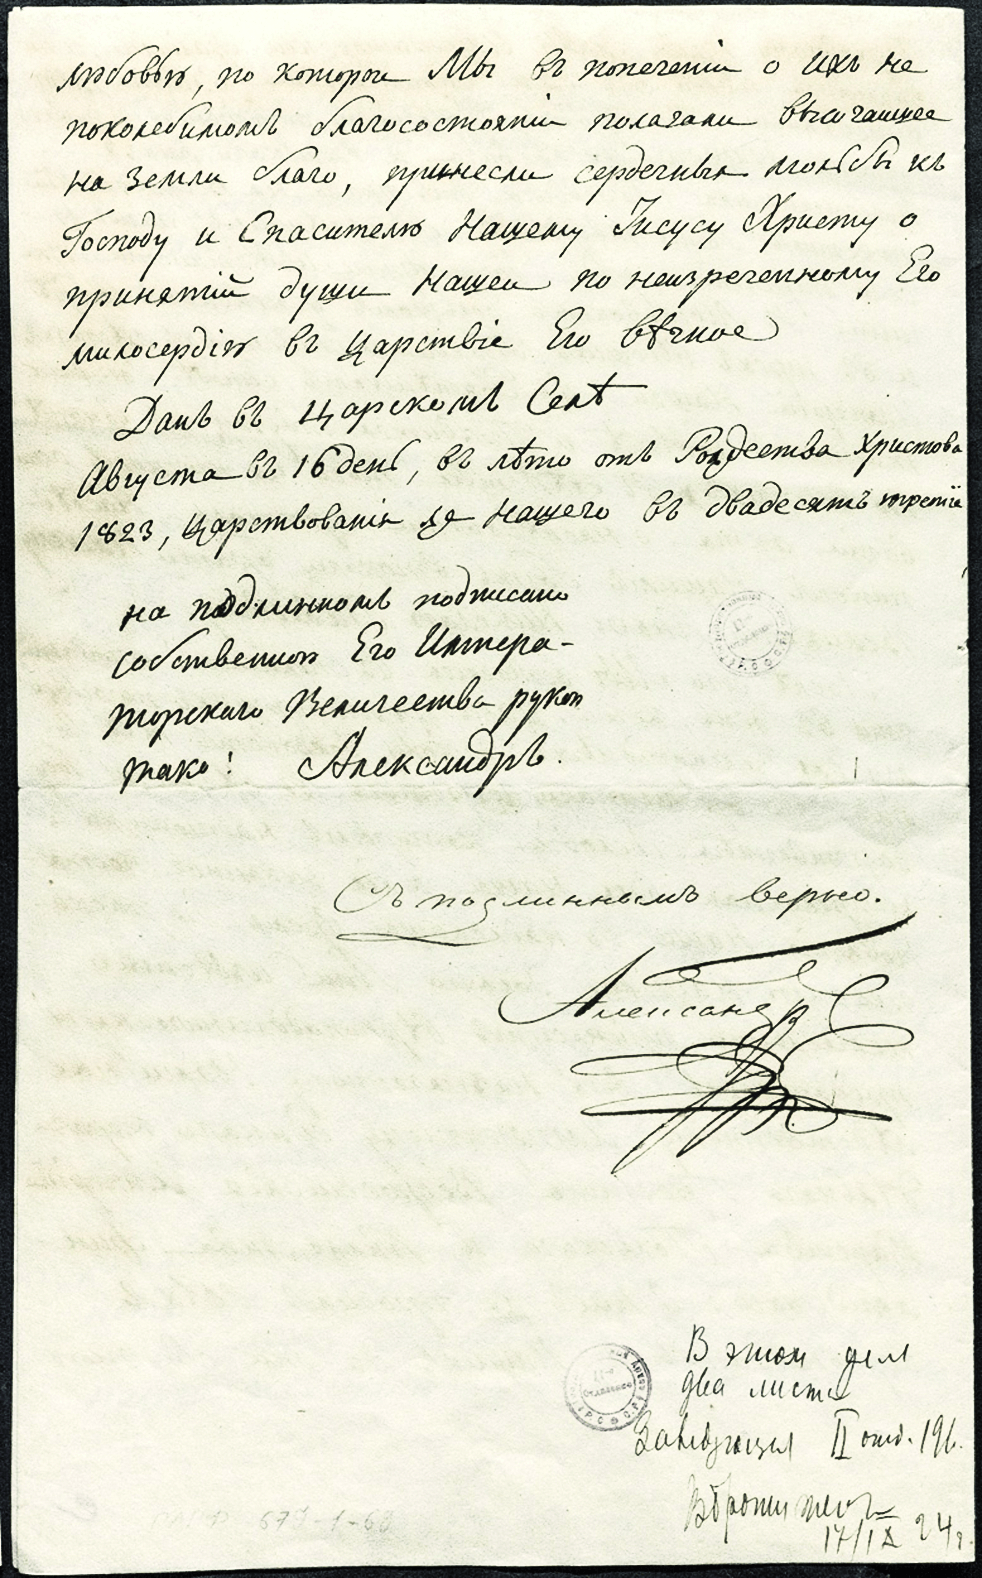 любовью, по которой Мы въ попеченіи о ихъ не
поколебимомъ благосостояніи полагали высочайшее
на земли благо, принесли сердечныя мольбы къ
Господу и Спасителю Нашему Іисусу Христу о
принятіи души Нашей по неизреченному Его
милосердію въ Царствіе Его вѣчное
Данъ въ Царскомъ Селѣ
Августа въ 16 день, въ лѣто отъ Рождества Христова
1823, Царствованія же Нашего въ двадесять третіе
на подлинномъ подписано
собственною Его Импера-
торскаго Величества рукою
тако: Александръ.
Съ подлиннымъ верно.
Александръ
В этом деле
два листа
Заведующая II отд. 196.
17/IX 24 г.
679-1-68